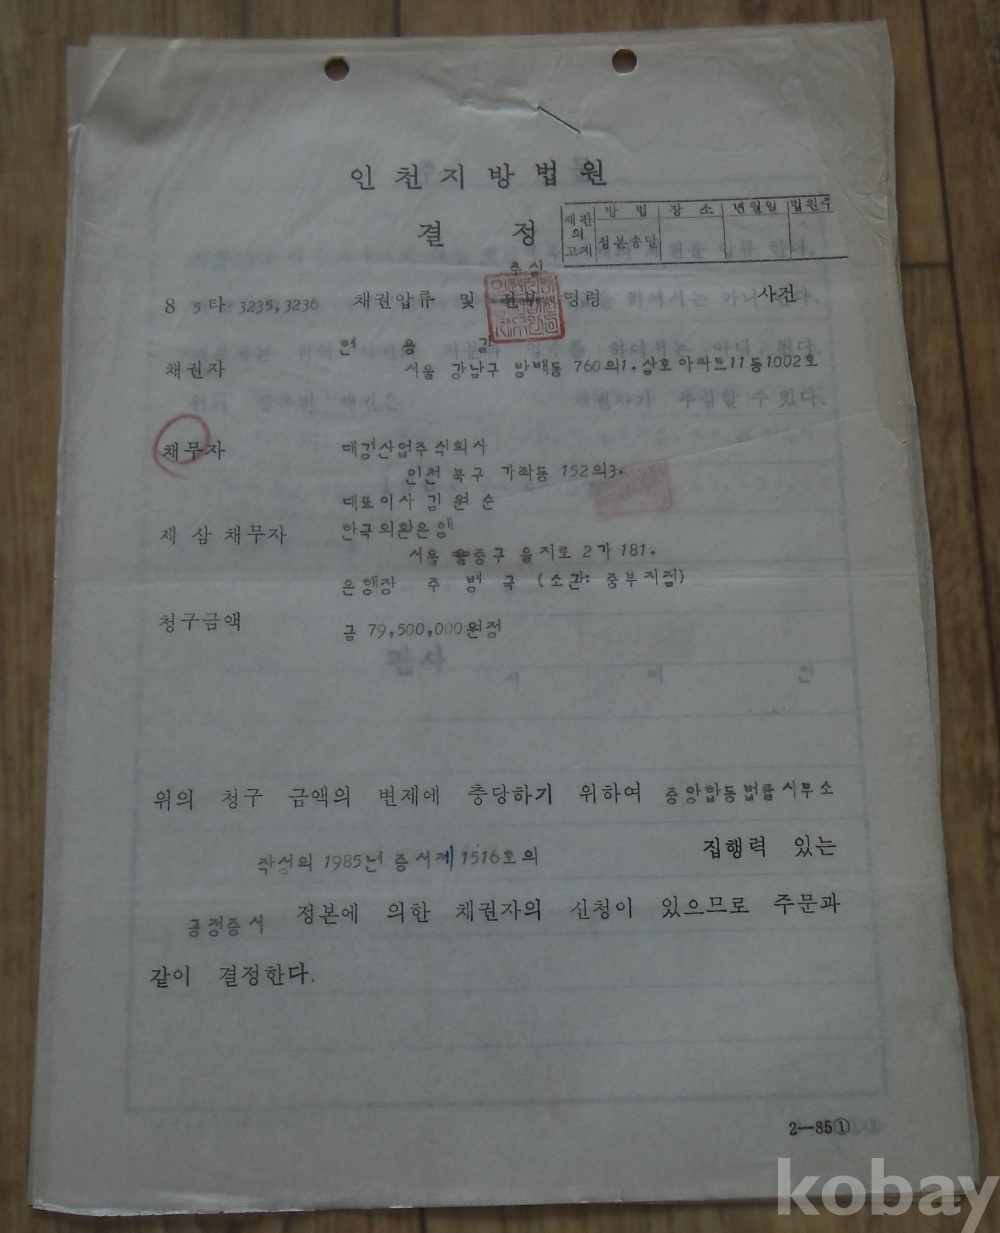 인천지방법원
결 정
재판의고지 방 법 장 소 년월일 법원주
정본송달
추심
85타 3235,3236 채권압류 및 전부 명령 사건
채권자 현 용 갈
서울 강남구 방배동 760의1. 삼호아파트11동1002호
채무자 대경산업주식회사
인천 북구 가좌동 152의3.
대표이사 김 원 순
제 삼 채무자 한국외환은행
서울 중구 을지로 2가 181.
은행장 주 병 국 (소관: 중부지점)
청구금액 금 79,500,000원정
위의 청구 금액의 변제에 충당하기 위하여 중앙합동법률사무소
작성의 1985년 증서제1516호의 집행력 있는
공정증서 정본에 의한 채권자의 신청이 있으므로 주문과
같이 결정한다.
2—85①
kobay